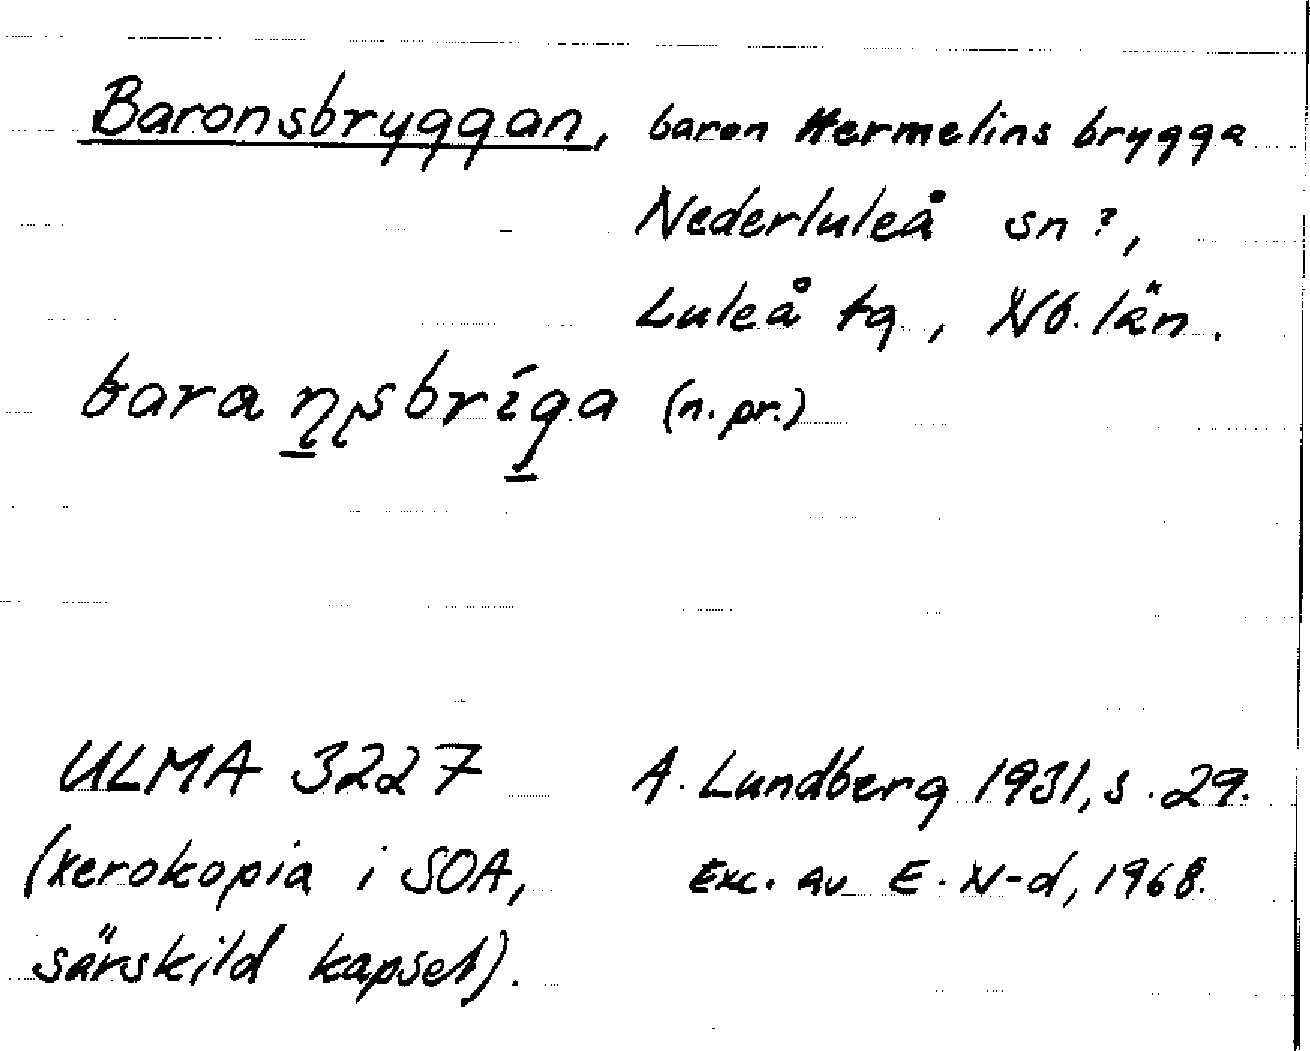 Baronsbryggan, baron Hermelins brygga
Nederluleå sn?,
Luleå tg., Nb. län.
(n. pr.)
ULMA 3227 A. Lundberg 1931, s. 29.
(xerokopia i SOA, Exc. av E. N-d, 1968.
särskild kapsel).